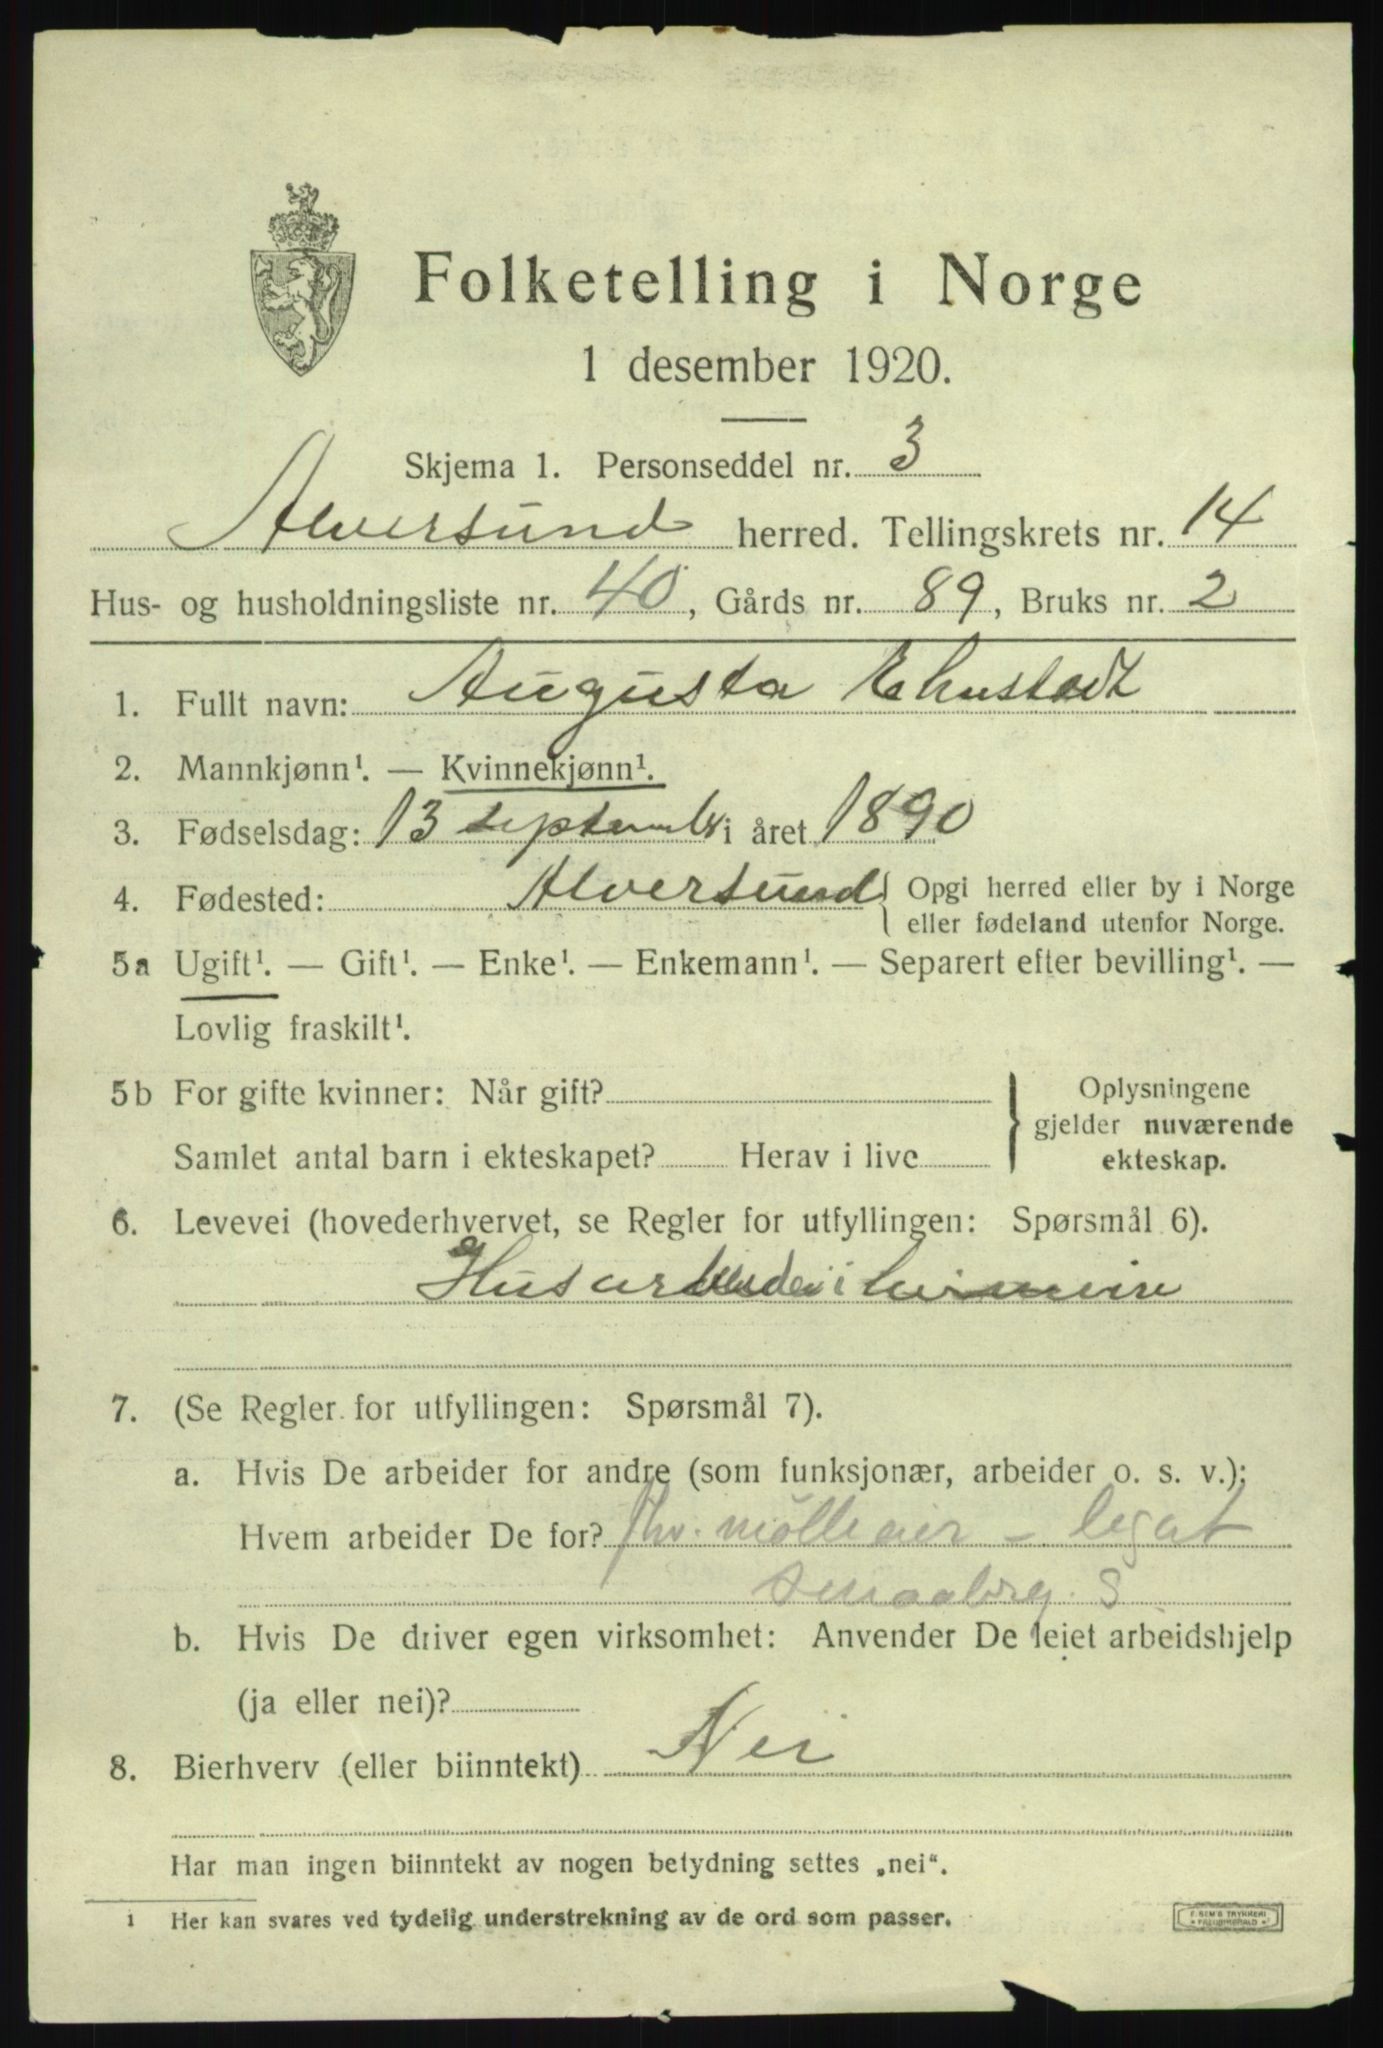 Folketelling i Norge
1 desember 1920.
Skjema 1. Personseddel nr. 3
Alversund herred. Tellingskrets nr. 14
Hus- og husholdningsliste nr. 40, Gårds nr. 89, Bruks nr. 2
1. Fullt navn: Augusta
2. Mannkjønn¹. — Kvinnekjønn¹.
3. Fødselsdag: 13 septembr i året 1890
4. Fødested: Alversund { Opgi herred eller by i Norge
eller fødeland utenfor Norge.
5a Ugift¹. — Gift¹. — Enke¹. — Enkemann¹. — Separert efter bevilling¹. —
Lovlig fraskilt¹.
5b For gifte kvinner: Når gift? } Oplysningene
gjelder nuværende
Samlet antal barn i ekteskapet? Herav i live ekteskap.
6. Levevei (hovederhvervet, se Regler for utfyllingen: Spørsmål 6).
i
7. (Se Regler for utfyllingen: Spørsmål 7).
a. Hvis De arbeider for andre (som funksjonær, arbeider o. s. v.):
Hvem arbeider De for? legat
b. Hvis De driver egen virksomhet: Anvender De leiet arbeidshjelp
(ja eller nei)?
8. Bierhverv (eller biinntekt) Nei
Har man ingen biinntekt av nogen betydning settes „nei“.
1 Her kan svares ved tydelig understrekning av de ord som passer.
F. SEM'S TRYKKERI
• FREDRIKSHALD •